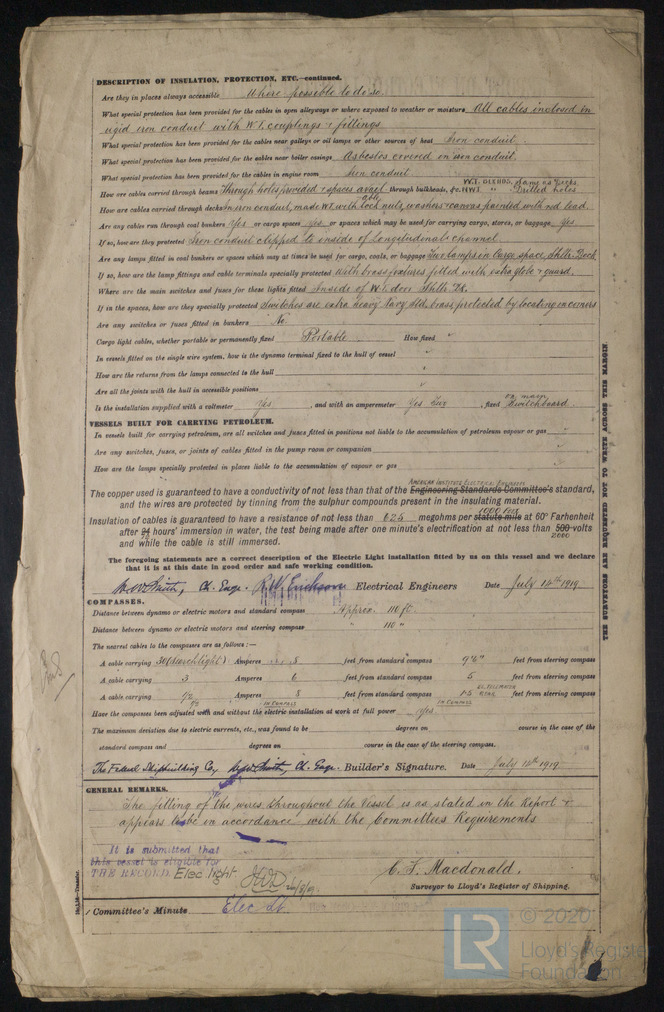 DESCRIPTION OF INSULATION, PROTECTION, ETC.—continued.
Are they in places always accessible Where possible to do so.
What special protection has been provided for the cables in open alleyways or where exposed to weather or moisture All cables inclosed in
rigid iron conduit with W.T. couplings & fittings
What special protection has been provided for the cables near galleys or oil lamps or other sources of heat Iron conduit.
What special protection has been provided for the cables near boiler casings Asbestos covered in iron conduit.
What special protection has been provided for the cables in engine room Iron conduit
How are cables carried through beams Through holes provided & spaces through bulkheads, &c. W.T. BLKHDS. same as Decks. N.W.T. " Drilled holes
How are cables carried through decks In iron conduit, made W.T. with lock nuts, washers & canvas painted with red lead.
Are any cables run through coal bunkers Yes or cargo spaces yes or spaces which may be used for carrying cargo, stores, or baggage yes
If so, how are they protected Iron conduit clipped to inside of longitudinal channel
Are any lamps fitted in coal bunkers or spaces which may at times be used for cargo, coals, or baggage Two lamps in Cargo space Shltr. Deck
If so, how are the lamp fittings and cable terminals specially protected With brass fixtures fitted with extra globe & guard.
Where are the main switches and fuses for these lights fitted Inside of W.T. door Shltr. Dk.
If in the spaces, how are they specially protected Switches are extra heavy Navy Std. brass, protected by locating in corners
Are any switches or fuses fitted in bunkers No.
Cargo light cables, whether portable or permanently fixed Portable How fixed "
In vessels fitted on the single wire system, how is the dynamo terminal fixed to the hull of vessel "
How are the returns from the lamps connected to the hull "
Are all the joints with the hull in accessible positions "
Is the installation supplied with a voltmeter Yes , and with an amperemeter Yes Two , fixed on main Switchboard.
VESSELS BUILT FOR CARRYING PETROLEUM.
In vessels built for carrying petroleum, are all switches and fuses fitted in positions not liable to the accumulation of petroleum vapour or gas
Are any switches, fuses, or joints of cables fitted in the pump room or companion
How are the lamps specially protected in places liable to the accumulation of vapour or gas
AMERICAN INSTITUTE ELECTRICAL ENGINEERS
The copper used is guaranteed to have a conductivity of not less than that of the Engineering Standards Committee's standard,
and the wires are protected by tinning from the sulphur compounds present in the insulating material.
1000 feet
Insulation of cables is guaranteed to have a resistance of not less than 625 megohms per statute mile at 60° Farhenheit
after 24 hours' immersion in water, the test being made after one minute's electrification at not less than 500 volts
2000
and while the cable is still immersed.
The foregoing statements are a correct description of the Electric Light installation fitted by us on this vessel and we declare
that it is at this date in good order and safe working condition.
Smith, Ch. Engr. Electrical Engineers Date July 14th 1919
COMPASSES.
Distance between dynamo or electric motors and standard compass Approx. 110 ft.
Distance between dynamo or electric motors and steering compass " 110 "
The nearest cables to the compasses are as follows:—
A cable carrying 30 (Searchlight) Amperes 8 feet from standard compass 9'6" feet from steering compass
A cable carrying 3 Amperes 6 feet from standard compass 5 feet from steering compass
A cable carrying 1/2 Amperes 8 feet from standard compass 15 feet from steering compass
IN COMPASS IN COMPASS
Have the compasses been adjusted with and without the electric installation at work at full power Yes
The maximum deviation due to electric currents, etc., was found to be degrees on course in the case of the
standard compass and degrees on course in the case of the steering compass.
The Federal Shipbuilding Co., Smith, Ch. Engr. Builder's Signature. Date July 14th 1919
GENERAL REMARKS.
The fitting of the wires throughout the Vessel is as stated in the Report &
appears to be in accordance with the Committees Requirements
It is submitted that
this vessel is eligible for
THE RECORD. Elec light
C. F. Macdonald.
Surveyor to Lloyd's Register of Shipping.
Committee's Minute Elec Lt.
THE SURVEYORS ARE REQUESTED NOT TO WRITE ACROSS THIS MARGIN.
LR
© 2020
Lloyd's Register
Foundation